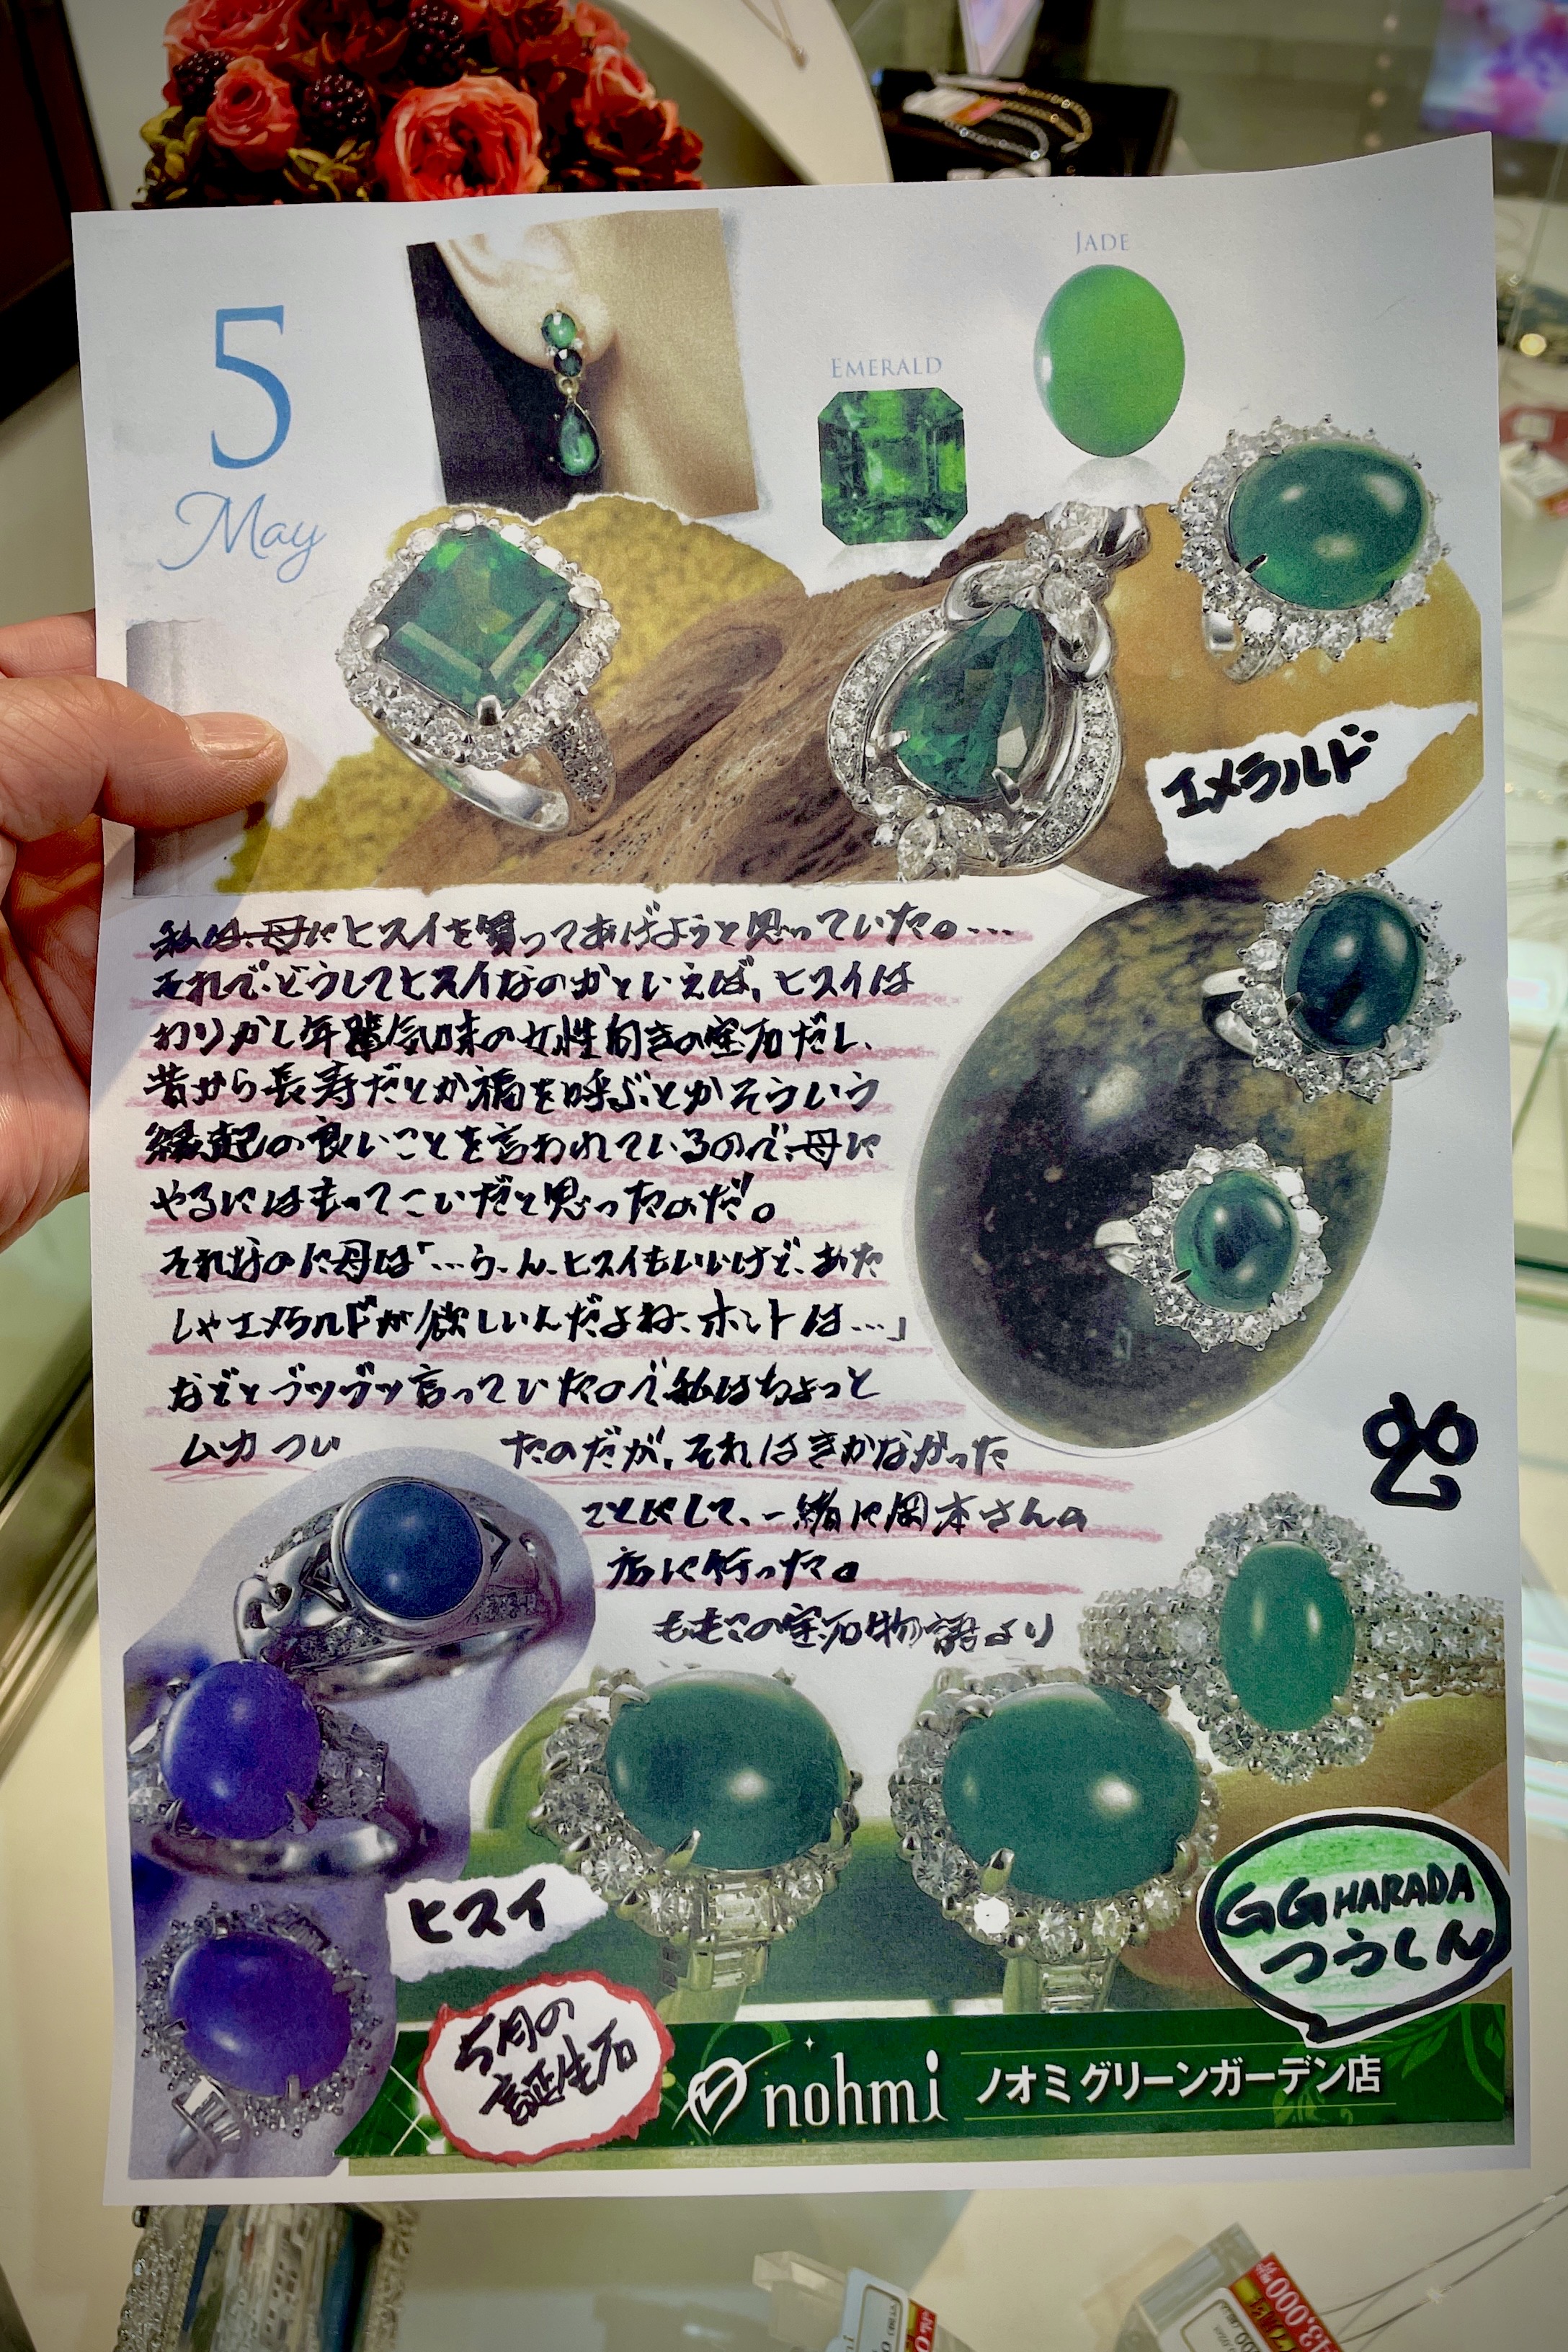 5
May
JADE
EMERALD
エメラルド
私は、母にヒスイを買ってあげようと思っていた。…
それで、どうしてヒスイなのかといえば、ヒスイは
わりかし年輩気味の女性向きの宝石だし、
昔から長寿だとか福を呼ぶとかそういう
縁起の良いことを言われているので、母に
やるにはもってこいだと思ったのだ。
それなのに母は「…う、ん、ヒスイもいいけど、あた
しゃエメラルドが欲しいんだよね、ホントは…」
などとブツブツ言っていたので私はちょっと
ムカつい たのだが、それはきかなかった
ことにして、一緒に岡本さんの
店に行った。
ももこの宝石物語より
ヒスイ
GG HARADA
つうしん
5月の
誕生石
nohmi ノオミグリーンガーデン店